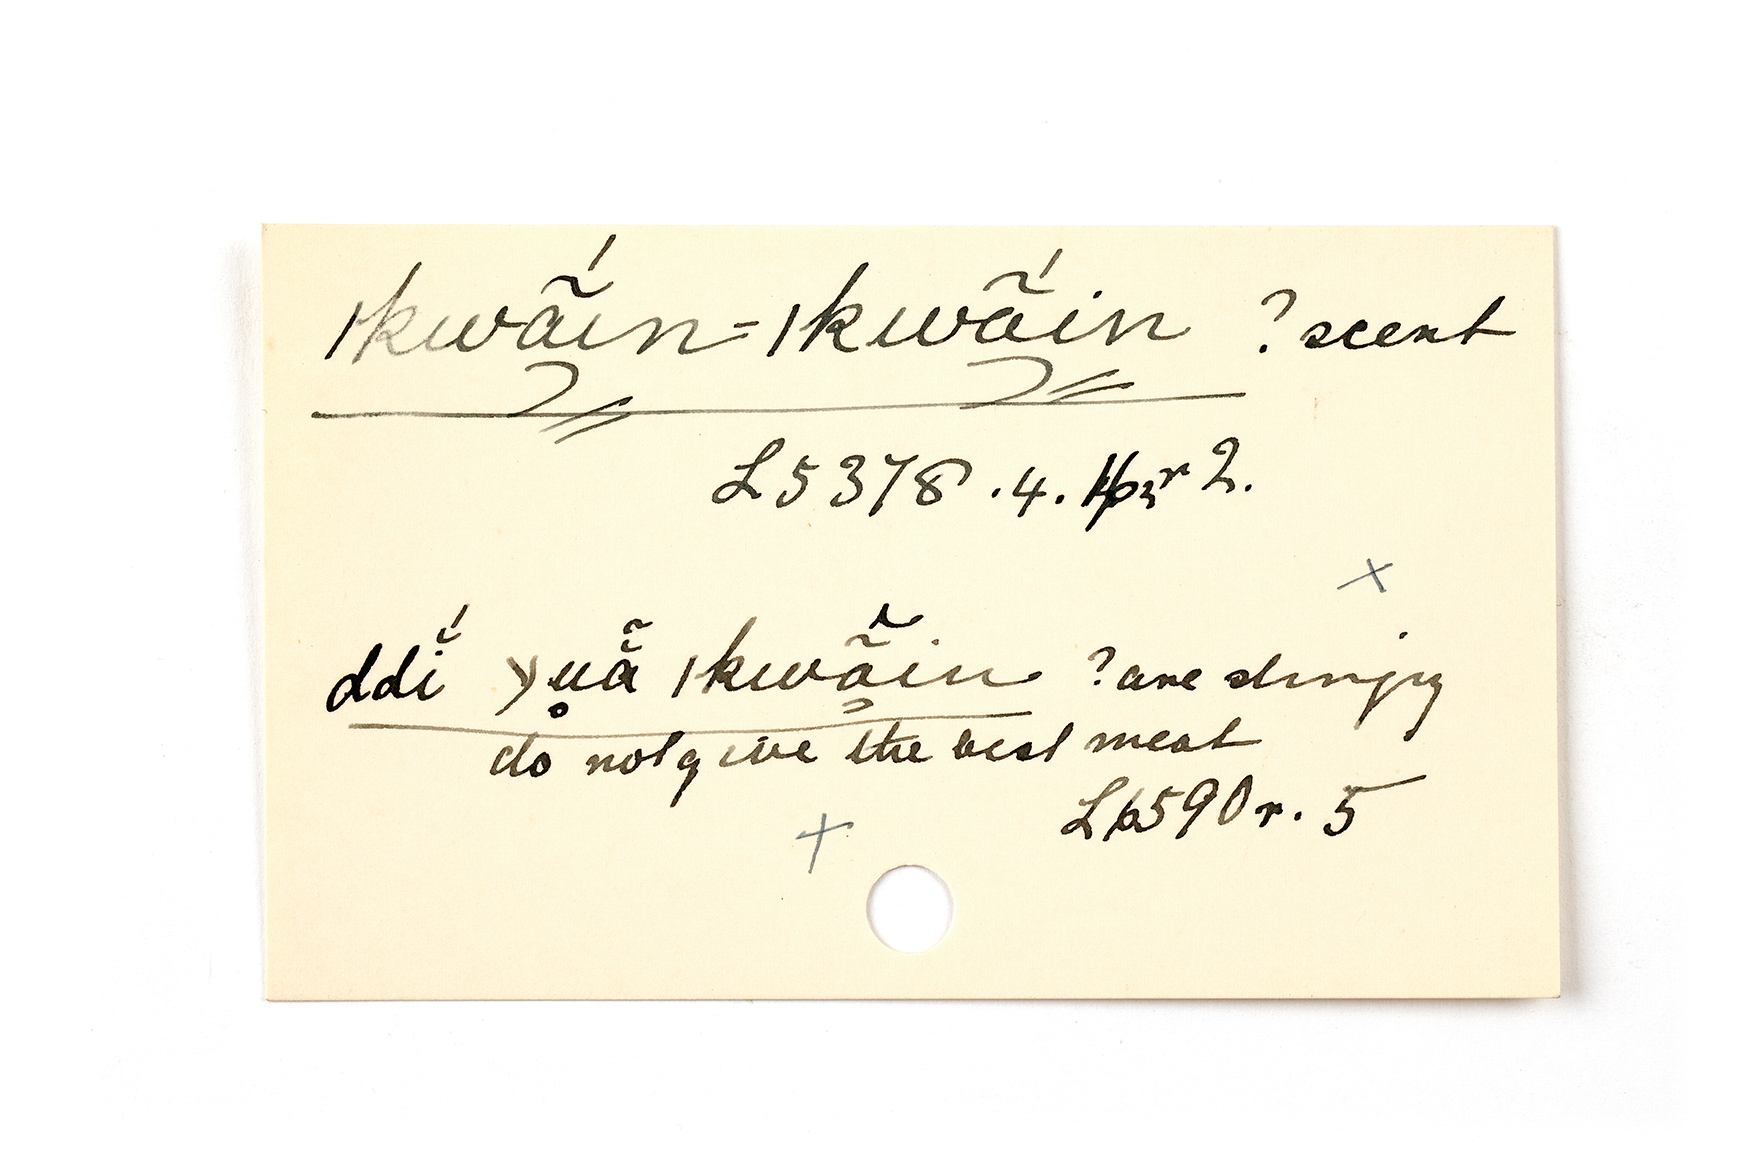 ǀkwā̃́in=ǀkwā̃́in ?scent
L5378.4. r 2.
ddĭ́ ɣu̥ā̃ ǀkwā̃in ?are stingy
do not give the best meat
L6590 r. 5